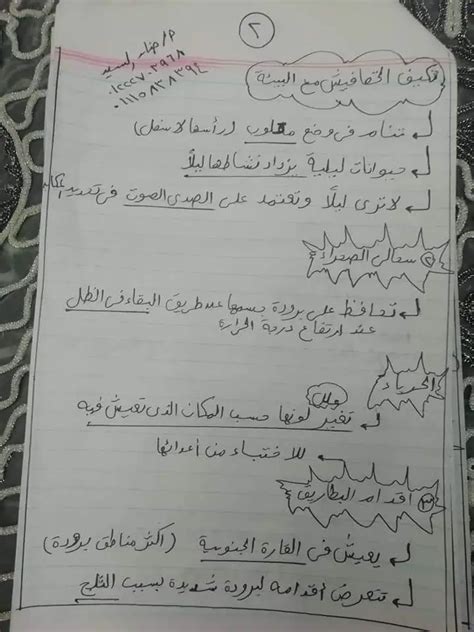 ٢
م/ صابر السيد
٠١٢٢٢٧٠٢٩٦٨
٠١١١٥٨٢٨٣٩٤
تكيف الخفافيش مع البيئة
تنام فى وضع مقلوب (رأسها لاسفل)
حيوانات ليلية يزداد نشاطها ليلاً
لا ترى ليلًا وتعتمد على الصدى الصوت فى تحديد
٢ سحالى الصحراء
تحافظ على برودة جسمها عن طريق البقاء فى الظل
عند ارتفاع درجة الحرارة
الحرباء
علل
تغير لونها حسب المكان الذى تعيش فيه
للاختباء من أعدائها
٣ أقدام البطاريق
يعيش فى القارة الجنوبية (أكثر مناطق برودة)
تتعرض أقدامه لبرودة شديدة بسبب الثلج